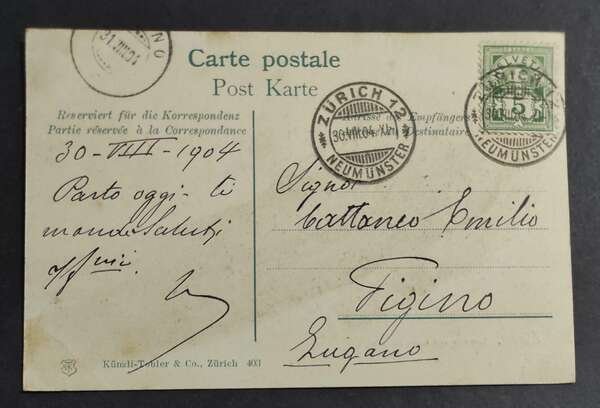 NO
31.VIII.04
Carte postale
Post Karte
Reserviert für die Korrespondenz
Partie réservée à la Correspondance
30-VIII-1904
Parto oggi - ti
mando Saluti
ZÜRICH 12
30.VIII.04.
NEUMÜNSTER
HELVETIA
5
ZÜRICH 12
NEUMÜNSTER
Adresse des Empfängers
Destinataire
Signor
Cattaneo Emilio
Figino
Lugano
Künzli-Tobler & Co., Zürich 403